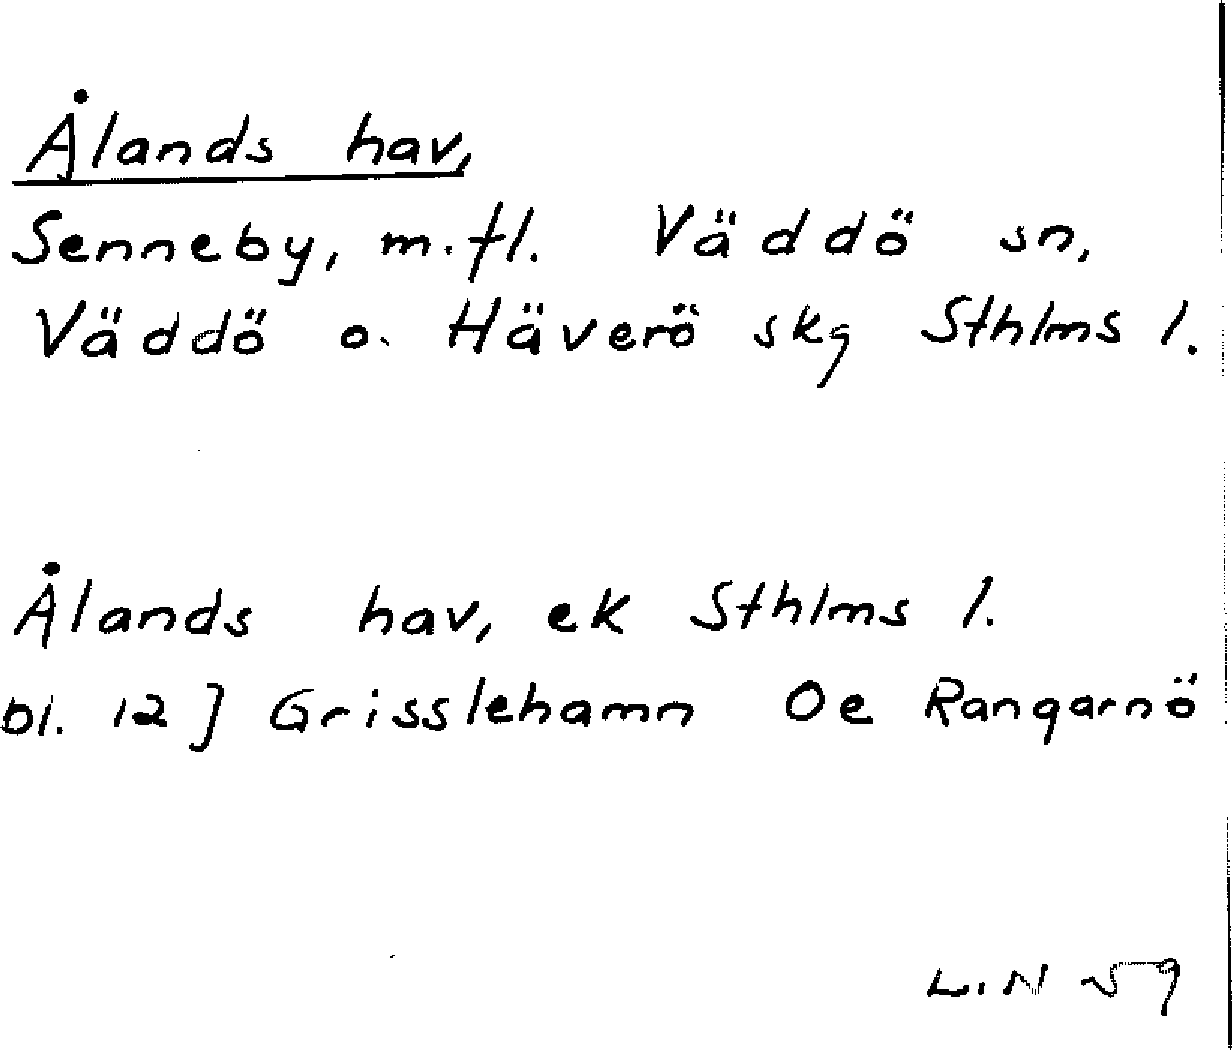 Ålands hav,
Senneby, m.fl. Väddö sn,
Väddö o. Häverö skg Sthlms l.
Ålands hav, ek Sthlms l.
bl. 12] Grisslehamn Oe Rangarnö
L.N 59